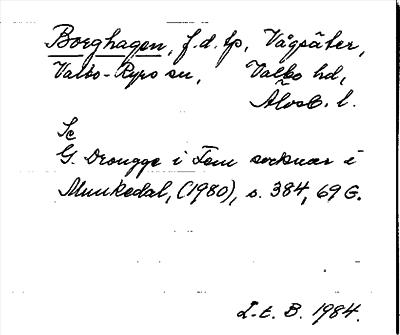 Borghagen, f.d. tp, Vågsäter,
Valbo-Ryrs sn, Valbo hd,
Älvsb. l.
Se
G. Drougge i Fem socknar i
Munkedal, (1980), s. 384, 69 G.
I-t. B. 1984.